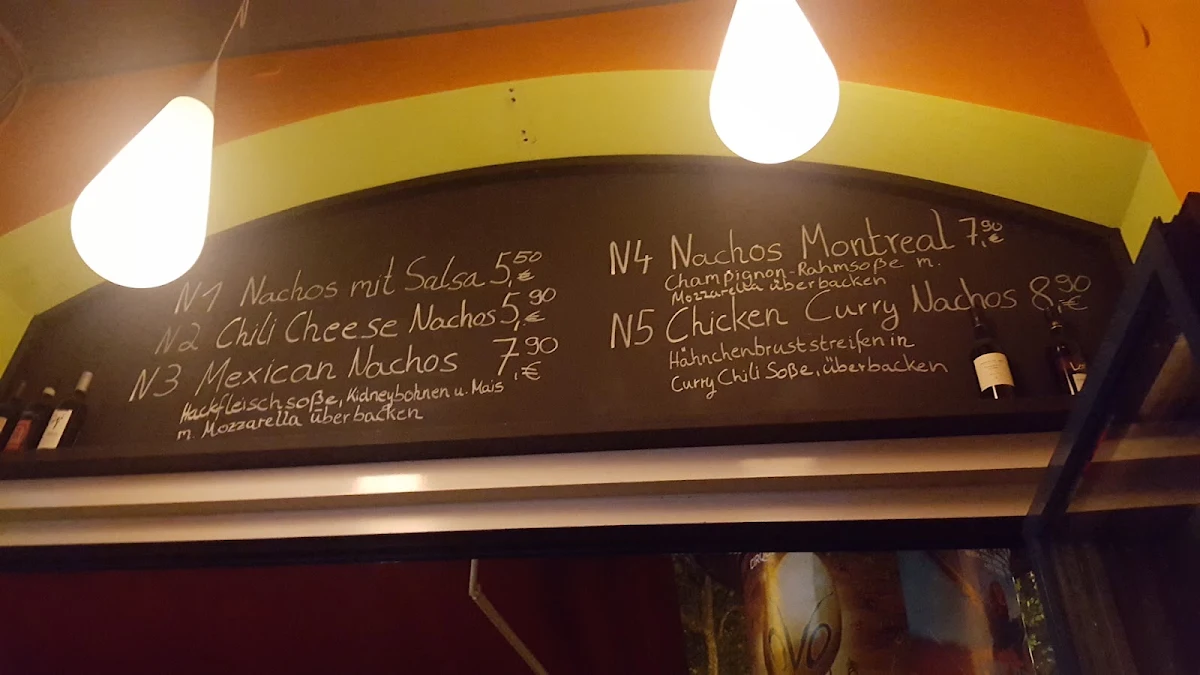 N1 Nachos mit Salsa 5,50 €
N2 Chili Cheese Nachos 5,90 €
N3 Mexican Nachos 7,90 €
Hackfleischsoße, Kidneybohnen u. Mais
m. Mozzarella überbacken
N4 Nachos Montreal 7,90 €
Champignon-Rahmsoße m.
Mozzarella überbacken
N5 Chicken Curry Nachos 8,90 €
Hähnchenbruststreifen in
Curry Chili Soße, überbacken
OVO